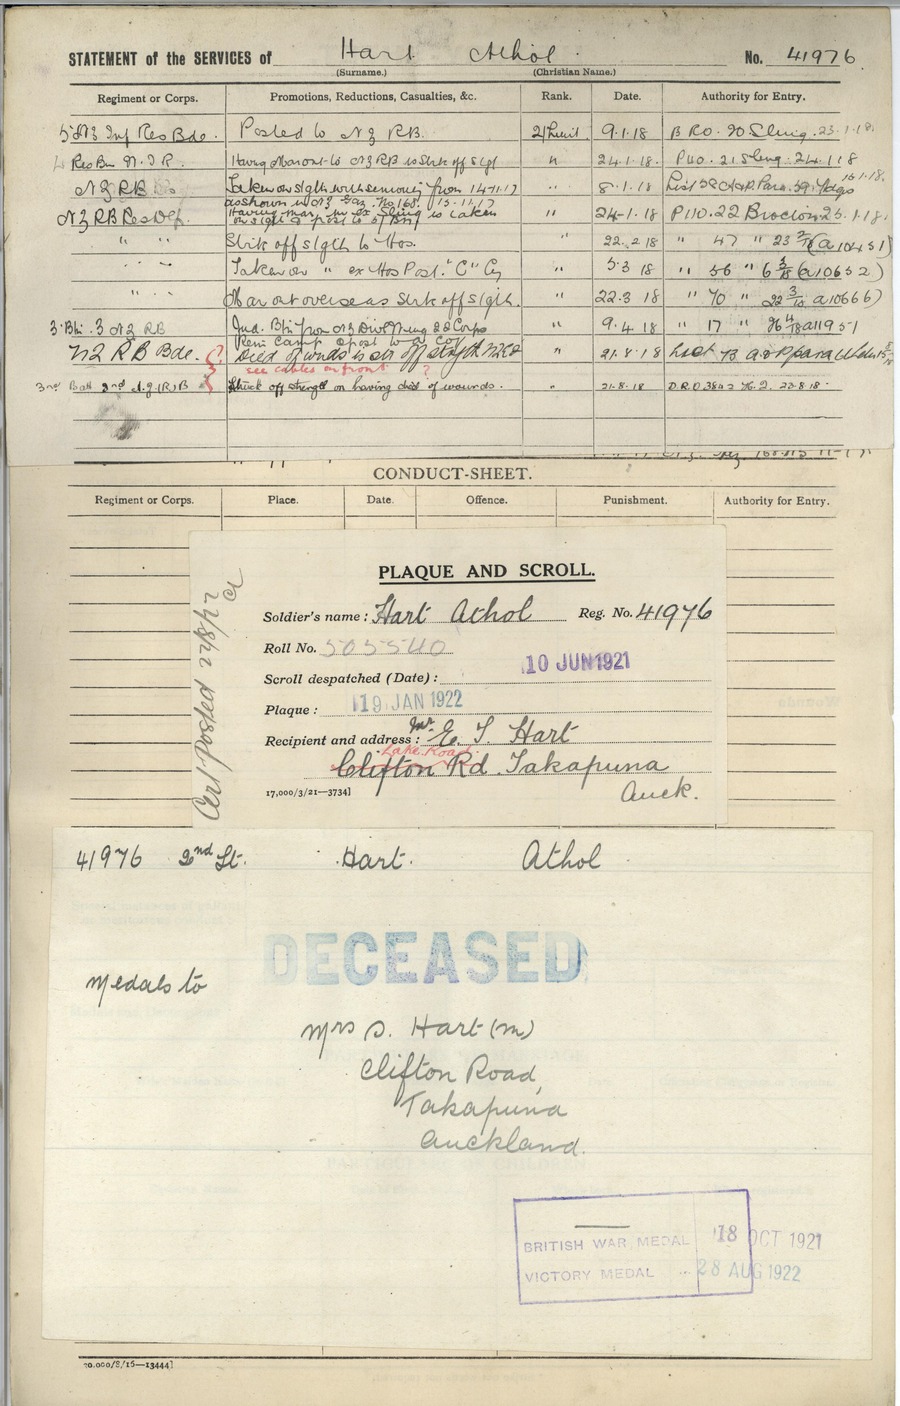 STATEMENT of the SERVICES of Hart Athol No. 41976
(Surname.) (Christian Name.)
Regiment or Corps. Promotions, Reductions, Casualties, &c. Rank. Date. Authority for Entry.
5 NZ Inf Res Bde. Posted to NZ RB. 2/Lieut 9.1.18 BRO. 20 Sling. 23.1.18.
4 Res Bn N.Z.R. Having Mar out to NZRB is Struk off s/gth " 24.1.18. P110. 21 Sling 24.1.18
16.1.18.
NZRB Taken on s/gth with seniority from 14.11.17 " 8.1.18 List 58 A&R Para. 59
as shown in NZ Gaz. No 168. 15.11.17
NZ RB Res Dep Having mar in ex Sling is taken " 24-1.18 P110.22 Brocton 25.1.18.
on s/gth & post to
" " Strk off s/gth to Hos. " 22.2.18 " 47 " 23 2/18 (a10451)
" " Taken on " ex Hos Post. "C" Cy " 5.3 18 " 56 " 6 3/18 (a10652)
" " Mar out overseas Strk off s/gth. " 22.3 18 " 70 " 22 3/18 a10666)
3. Btn. 3 NZ RB Jnd. Btn from NZ Div Wing 22 Corps " 9.4.18 " 17 " 26 4/18 a11951
Rein Camp & post to a Coy
NZ RB Bde. Died of wnds is str off stgth NZEF " 21.8.18 List 73 A&R para
see cables on front ?
3rd Batt 3rd N.Z.(R)B Struck off strength on having died of wounds. " 21.8.18 D.R.O.3842 23.8.18.
CONDUCT-SHEET.
Regiment or Corps. Place. Date. Offence. Punishment. Authority for Entry.
PLAQUE AND SCROLL.
Soldier's name: Hart Athol Reg. No. 41976
Roll No. 505540
Scroll despatched (Date): 10 JUN 1921
Plaque: 19 JAN 1922
Recipient and address: Mr. E. T. Hart
Lake Road
Clifton Rd. Takapuna
17,000/3/21—3734] Auck.
Cert Posted 24/8/22
41976 2nd Lt. Hart. Athol
DECEASED
Medals to
Mrs S. Hart (m)
Clifton Road,
Takapuna
Auckland.
BRITISH WAR MEDAL 18 OCT 1921
VICTORY MEDAL .. 28 AUG 1922
20,000/8/16—13444]